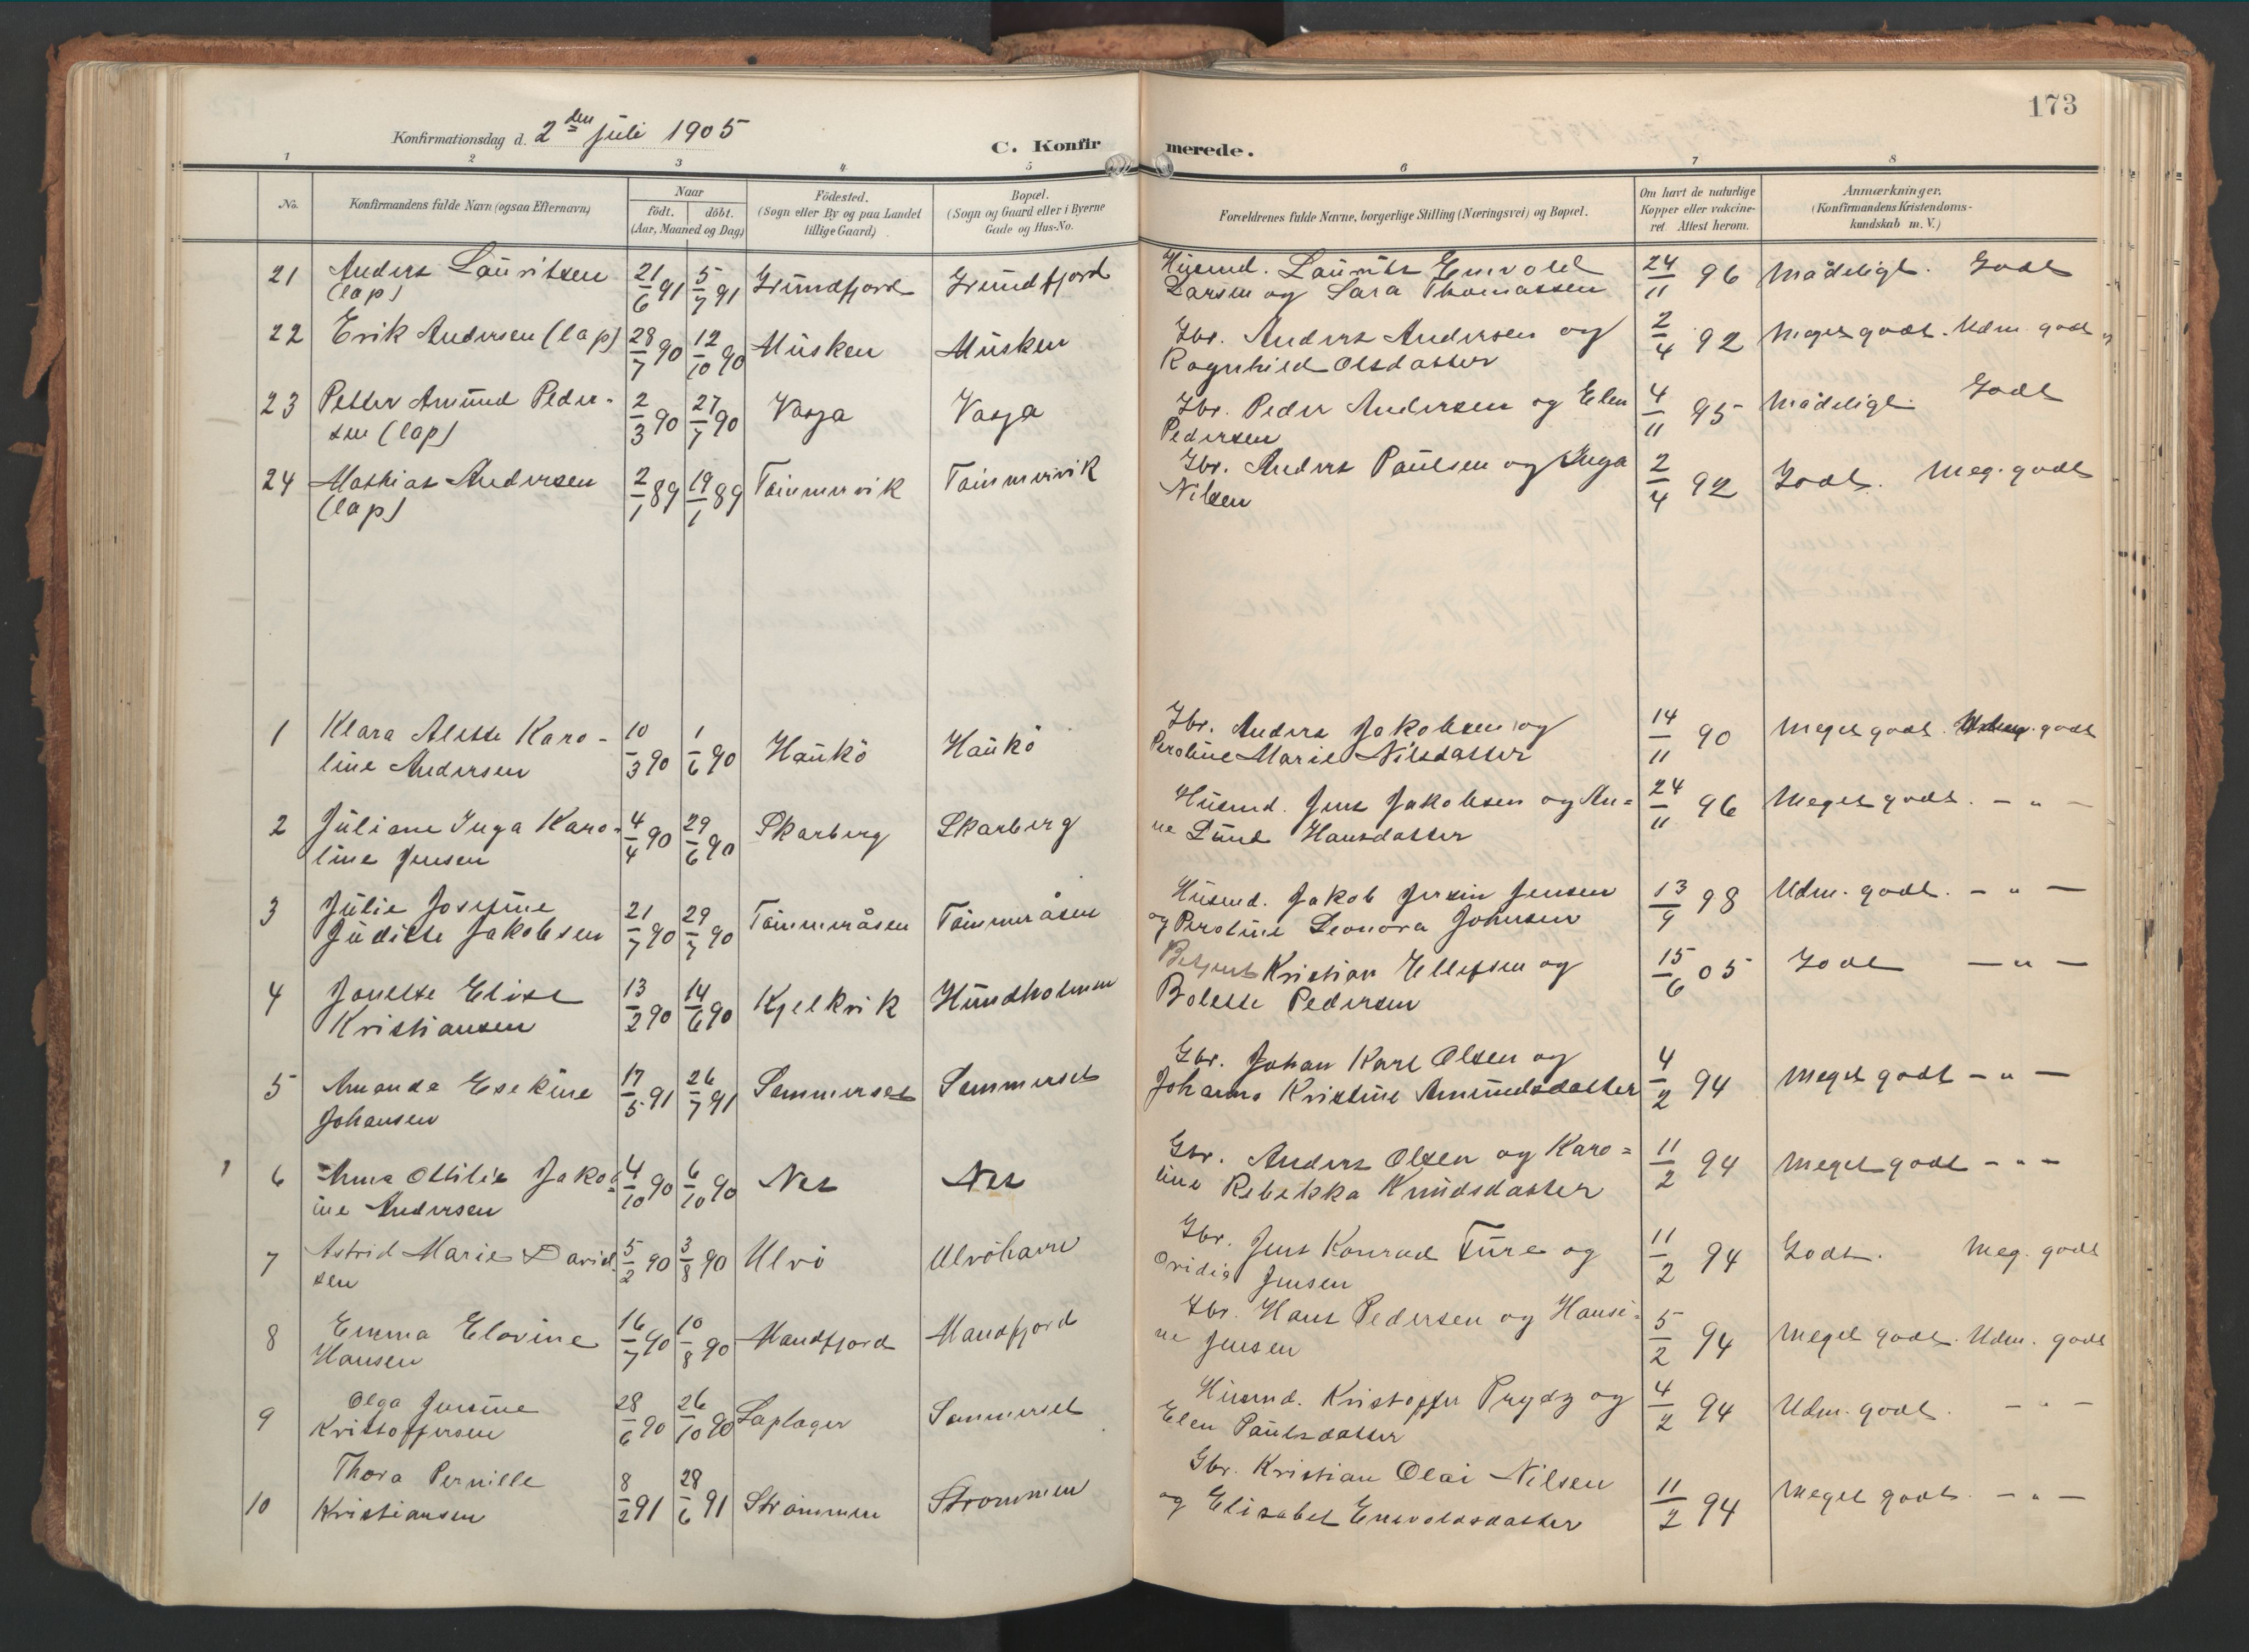 173
Konfirmationsdag d. 2den juli 1905
C. Konfirmerede.
1 2 3 4 5 6 7 8
No.
Konfirmandens fulde Navn (ogsaa Efternavn)
Naar
födt. döbt.
(Aar, Maaned og Dag)
Födested.
(Sogn eller By og paa Landet
tillige Gaard)
Bopæl.
(Sogn og Gaard eller i Byerne
Gade og Hus-No.
Forældrenes fulde Navne, borgerlige Stilling (Næringsvei) og Bopæl.
Om havt de naturlige
Kopper eller vakcine-
ret Attest herom.
Anmærkninger.
(Konfirmandens Kristendoms-
kundskab m. V.)
21 Anders Lauritsen 21/6 91 5/7 91 Grundfjord Grundfjord Husmd. Laurits Emvold 24/11 96 Mådeligt. Godt
(lap) Larsen og Sara Thomassen
22 Erik Andersen (lap) 28/7 90 12/10 90 Musken Musken Gbr. Anders Andersen og 2/4 92 Meget godt. Udm. godt
Ragnhild Olsdatter
23 Petter Amund Peder- 2/3 90 27/7 90 Vasja Vasja Gbr. Peder Andersen og Elen 4/11 95 Mådeligt. Godt
sen (lap) Pedersen
24 Mathias Andersen 2/1 89 19/1 89 Tömmervik Tömmervik Gbr. Anders Paulsen og Inga 2/4 92 Godt. Meg. godt
(lap) Nilsen
1 Klara Alette Karo- 10/3 90 1/6 90 Haukö Haukö Gbr. Anders Jakobsen og 14/11 90 Meget godt. Udm. godt
line Andersen Peroline Marie Nilsdatter
2 Juliane Inga Karo- 4/4 90 29/6 90 Skarberg Skarberg Husmd. Jens Jakobsen og An= 24/11 96 Meget godt. - " -
line Jensen ne Lund Hansdatter
3 Julie Josefine 21/7 90 29/7 90 Tömmeråsen Tömmeråsen Husmd. Jakob Jensen 13/9 98 Udm. godt. - " -
Juditte Jakobsen og Peroline Leonora Johnsen
4 Jonette Elise 13/2 90 14/6 90 Kjelkvik Hundholmen Kristian Ellefsen og 15/6 05 Godt - " -
Kristiansen Bolette Pedersen
5 Amanda Esekine 17/5 91 26/7 91 Sommerset Sommerset Gbr. Johan Karl Olsen og 4/2 94 Meget godt - " -
Johansen Johanna Kristine Amundsdatter
6 Anna Ottilie Jako= 4/10 90 6/10 90 Nes Nes Gbr. Anders Olsen og Karo= 11/2 94 Meget godt - " -
ine Andersen line Rebekka Knudsdatter
7 Astrid Marie David- 5/2 90 3/8 90 Ulvö Ulvöhavn Gbr. Jens Konrad Ture og 11/2 94 Godt. Meg. godt
sen Ovidia Jensen
8 Emma Elovine 16/7 90 10/8 90 Mandfjord Mandfjord Gbr. Hans Pedersen og Hansi- 5/2 94 Meget godt. Udm. godt
Hansen ne Jensen
9 Olga Jensine 28/6 90 26/10 90 Laplager Sommerset Husmd. Kristoffer Prydz og 4/2 94 Udm. godt. - " -
Kristoffersen Elen Paulsdatter
10 Thora Pernille 8/2 91 28/6 91 Strömmen Strömmen Gbr. Kristian Olai Nilsen 11/2 94 Meget godt. - " -
Kristiansen og Elisabet Ensvoldsdatter